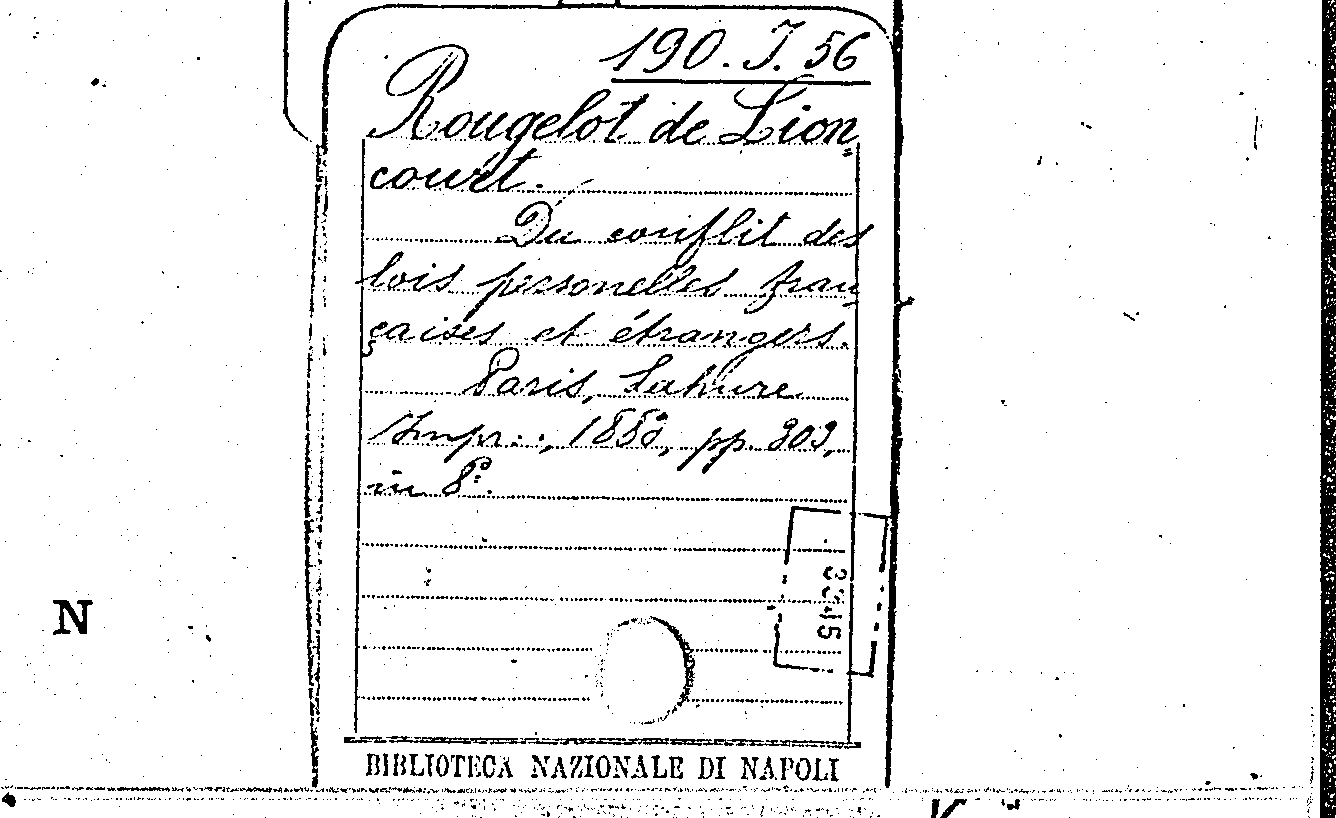 190. J. 56
Rougelot de Lion„
court.
Du conflit des
lois personelles fran
çaises et étrangers.
Paris, Lahure
Impr.., 1883, pp. 303,
in 8º.
N
BIBLIOTECA NAZIONALE DI NAPOLI